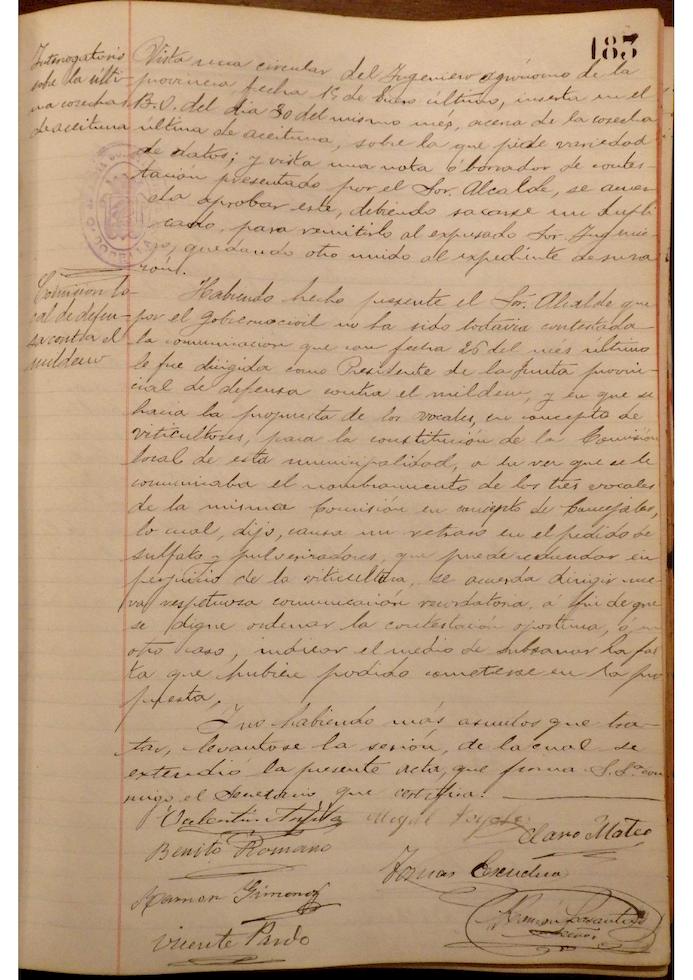 183
Interrogatorio
sobre la últi-
ma cosecha
de aceituna
Vista una circular del Ingeniero agrónomo de la
provincia, fecha 15 de Enero último, inserta en el
B.O. del día 30 del mismo mes, acerca de la cosecha
última de aceituna, sobre la que pide variedad
de datos; y vista una nota ó borrador de contes-
tación presentado por el Sor. Alcalde, se acuer-
da aprobar este, debiendo sacarse un dupli-
cado, para remitirlo al expresado Sor. Ingenie-
ro, quedando otro unido al expediente de su ra-
zón.
Comisión lo-
cal de defen-
sa contra el
mildew
Habiendo hecho presente el Sor. Alcalde que
por el Gobierno civil no ha sido todavía contestada
la comunicación que con fecha 26 del mes último
le fue dirigida como Presidente de la Junta provin-
cial de defensa contra el mildew, y en que se
hacía la propuesta de los vocales, en concepto de
viticultores, para la constitución de la Comisión
local de esta municipalidad, a su vez que se le
comunicaba el nombramiento de los tres vocales
de la misma Comisión en concepto de Concejales,
lo cual, dijo, causa un retraso en el pedido de
sulfato y pulverizadores, que puede redundar en
perjuicio de la viticultura, se acuerda dirigir nue-
va respetuosa comunicación recordatoria, á fin de que
se digne ordenar la contestación oportuna, ó, en
otro caso, indicar el medio de subsanar la fal-
ta que hubiere podido cometerse en la pro-
puesta.
Y no habiendo más asuntos que tra-
tar, levantose la sesión, de la cual se
extendió la presente acta, que firma S.Sª con-
migo el Secretario que certifica.
Valentín
Clavo Mateo
Benito Romano
Tomas
Ramon Gimenez
Ramon
Vicente Pardo